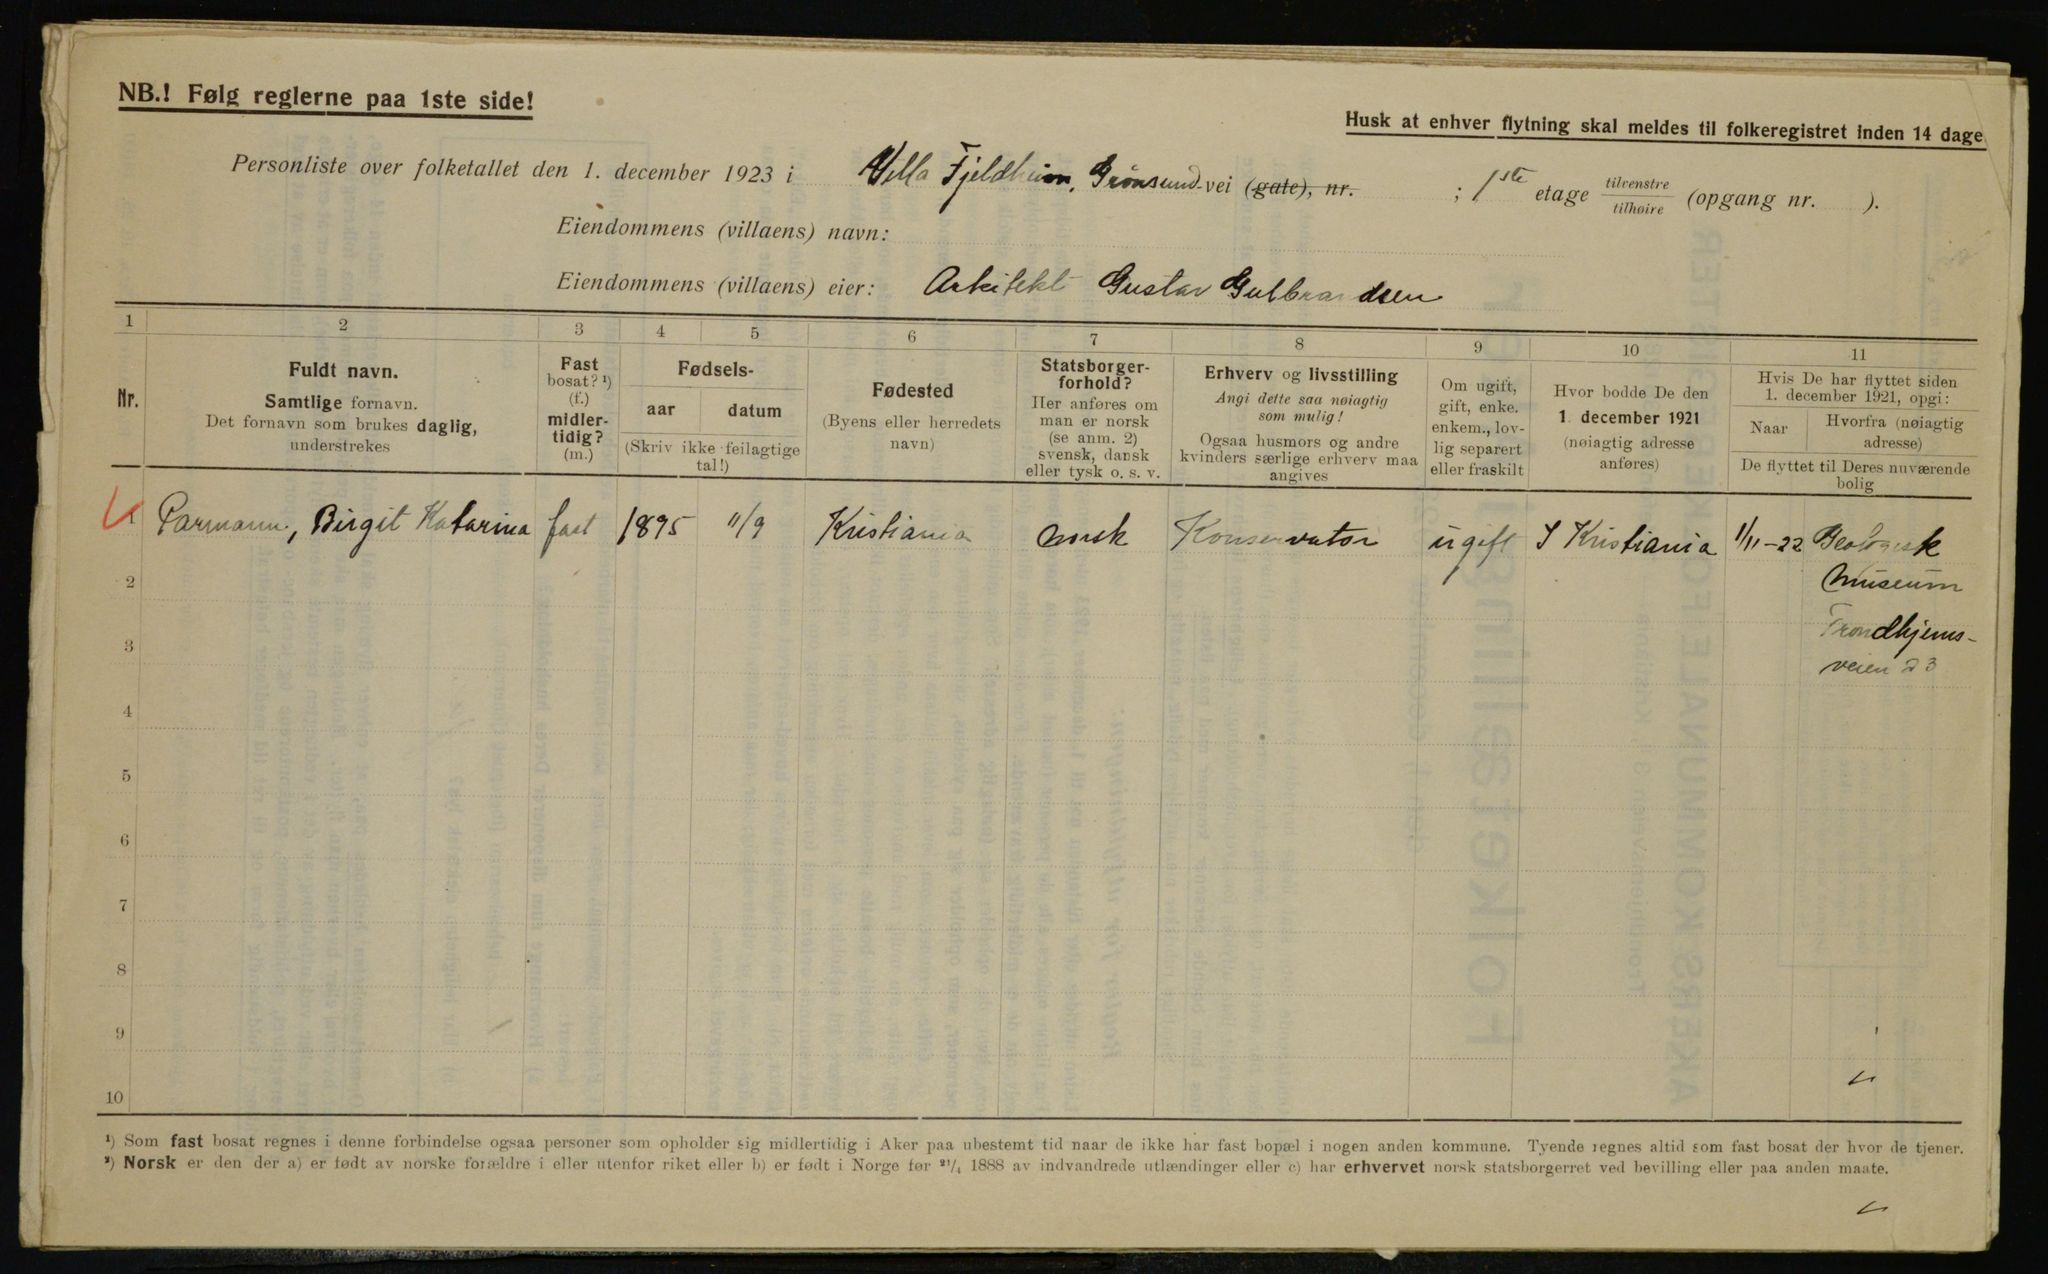 NB.! Følg reglerne paa 1ste side!
Husk at enhver flytning skal meldes til folkeregistret inden 14 dage
Personliste over folketallet den 1. december 1923 i Villa Fjeldheim, Grönsund-vei (gate), nr. ; 1ste etage tilvenstre/tilhøire (opgang nr. ).
Eiendommens (villaens) navn:
Eiendommens (villaens) eier: Arkitekt Gustav Gulbrandsen
1 2 3 4 5 6 7 8 9 10 11
Nr.
Fuldt navn.
Samtlige fornavn.
Det fornavn som brukes daglig,
understrekes
Fast
bosat? ¹)
(f.)
midler-
tidig?
(m.)
Fødsels-
aar datum
(Skriv ikke feilagtige
tal!)
Fødested
(Byens eller herredets
navn)
Statsborger-
forhold?
Her anføres om
man er norsk
(se anm. 2)
svensk, dansk
eller tysk o. s. v.
Erhverv og livsstilling
Angi dette saa nøiagtig
som mulig!
Ogsaa husmors og andre
kvinders særlige erhverv maa
angives
Om ugift,
gift, enke.
enkem., lov-
lig separert
eller fraskilt
Hvor bodde De den
1. december 1921
(nøiagtig adresse
anføres)
Hvis De har flyttet siden
1. december 1921, opgi:
Naar
Hvorfra (nøiagtig
adresse)
De flyttet til Deres nuværende
bolig
1 Parmann, Birgit Katarina fast 1895 11/9 Kristiania norsk Konservator ugift I Kristiania 1/11-22 Geologisk
2 museum
3 Trondhjems-
veien 23
4
5
6
7
8
9
10
¹) Som fast bosat regnes i denne forbindelse ogsaa personer som opholder sig midlertidig i Aker paa ubestemt tid naar de ikke har fast bopæl i nogen anden kommune. Tyende regnes altid som fast bosat der hvor de tjener.
²) Norsk er den der a) er født av norske forældre i eller utenfor riket eller b) er født i Norge før 21/4 1888 av indvandrede utlændinger eller c) har erhvervet norsk statsborgerret ved bevilling eller paa anden maate.